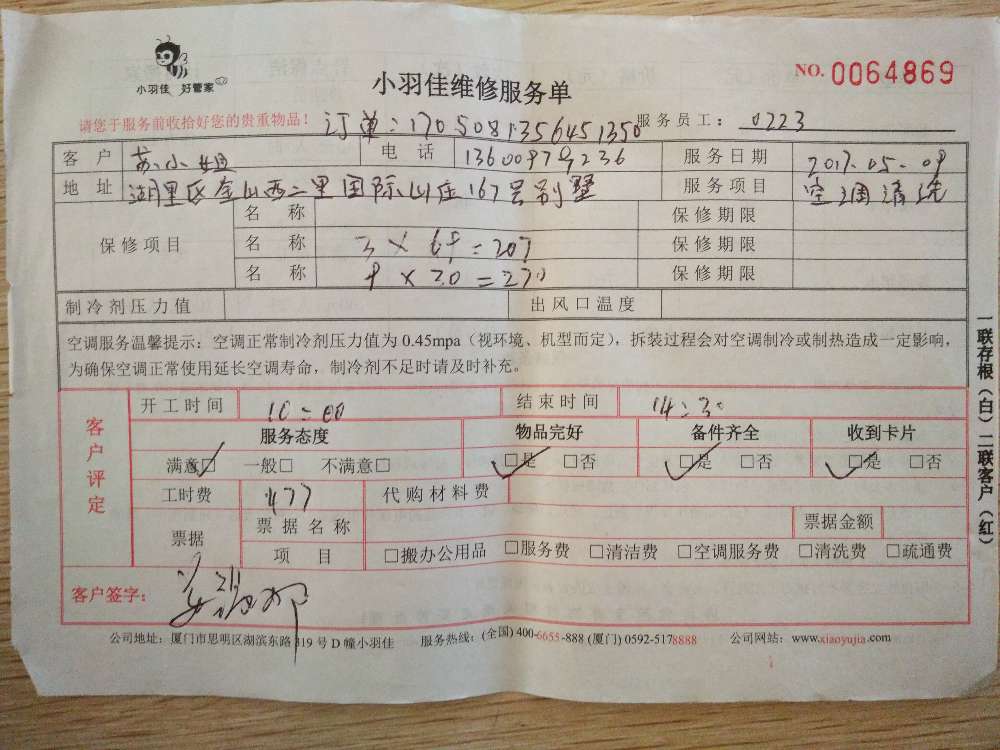 小羽佳 好管家
小羽佳维修服务单
NO. 0064869
请您于服务前收拾好您的贵重物品！ 订单：1705081356451350 服务员工： 0223
客 户 苏小姐 电 话 13600979236 服务日期 2017.05.09
地 址 湖里区金山西二里国际山庄167号别墅 服务项目 空调清洗
保修项目
名 称 保修期限
名 称 3×69=207 保修期限
名 称 9×30=270 保修期限
制冷剂压力值 出风口温度
空调服务温馨提示：空调正常制冷剂压力值为 0.45mpa（视环境、机型而定），拆装过程会对空调制冷或制热造成一定影响，
为确保空调正常使用延长空调寿命，制冷剂不足时请及时补充。
客户评定
开工时间 10:00 结束时间 14:30
服务态度 物品完好 备件齐全 收到卡片
满意□ 一般□ 不满意□ □是 □否 □是 □否 □是 □否
工时费 477 代购材料费
票据 票据名称 票据金额
项 目 □搬办公用品 □服务费 □清洁费 □空调服务费 □清洗费 □疏通费
客户签字：
公司地址：厦门市思明区湖滨东路 319 号 D 幢小羽佳 服务热线：(全国) 400-6655-888 (厦门) 0592-5178888 公司网站：www.xiaoyujia.com
一联存根（白）二联客户（红）